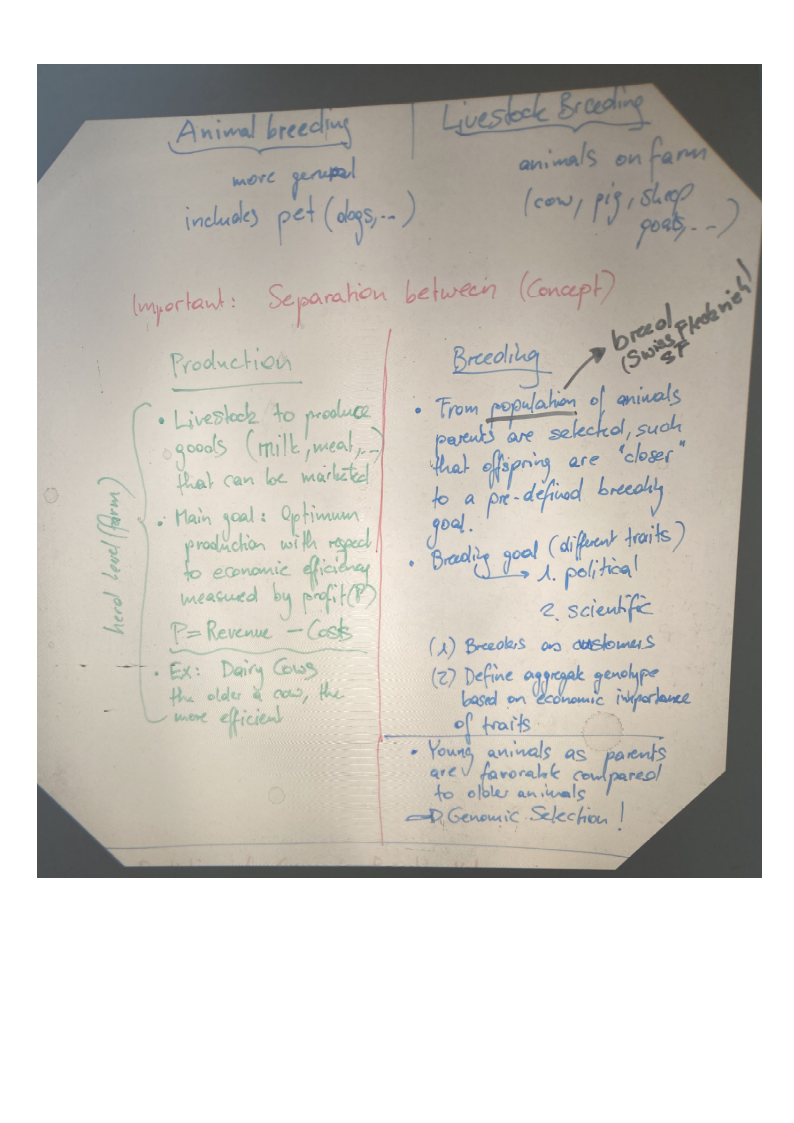 Animal breeding
more general
includes pet (dogs,...)
Livestock Breeding
animals on farm
(cow, pig, sheep
goats,...)
Important: Separation between (Concept)
Production
• Livestock to produce
goods (milk, meat,...)
that can be marketed
• Main goal: Optimum
production with respect
to economic efficiency
measured by profit (P)
P = Revenue - Costs
• Ex: Dairy Cows
the older a cow, the
more efficient
herd level (farm)
Breeding
breed
(Swiss Fleckvieh)
SF
• From population of animals
parents are selected, such
that offspring are "closer"
to a pre-defined breeding
goal.
• Breeding goal (different traits)
1. political
2. scientific
(1) Breeders as customers
(2) Define aggregate genotype
based on economic importance
of traits
• Young animals as parents
are favorable compared
to older animals
⇒ Genomic Selection!